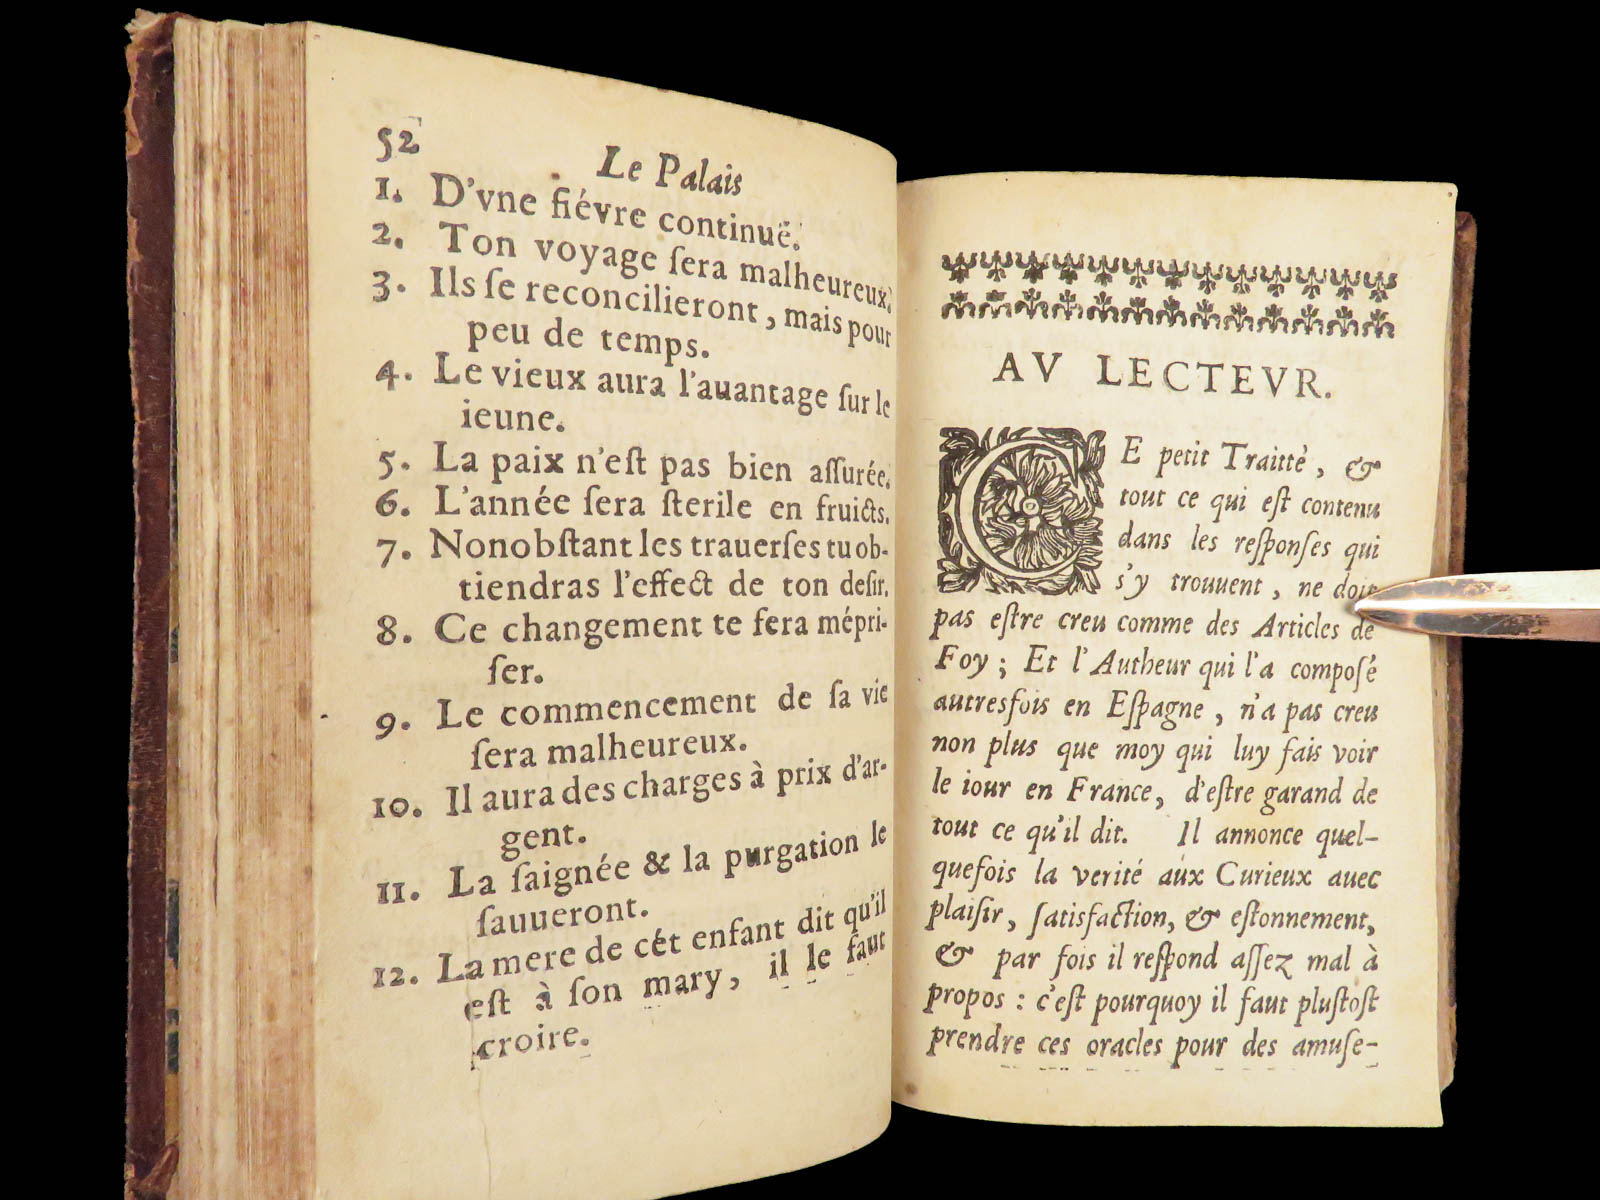 52
Le Palais
1. D'vne fiévre continuë.
2. Ton voyage ſera malheureux.
3. Ils ſe reconcilieront, mais pour
peu de temps.
4. Le vieux aura l'auantage ſur le
ieune.
5. La paix n'eſt pas bien aſſurée.
6. L'année ſera ſterile en fruicts.
7. Nonobſtant les trauerſes tu ob-
tiendras l'effect de ton deſir.
8. Ce changement te fera mépri-
ſer.
9. Le commencement de ſa vie
ſera malheureux.
10. Il aura des charges à prix d'ar-
gent.
11. La ſaignée & la purgation le
ſauueront.
12. La mere de cét enfant dit qu'il
eſt à ſon mary, il le faut
croire.
AV LECTEVR.
CE petit Traitté, &
tout ce qui eſt contenu
dans les reſponſes qui
s'y trouuent, ne doit
pas eſtre creu comme des Articles de
Foy; Et l'Autheur qui l'a compoſé
autresfois en Eſpagne, n'a pas creu
non plus que moy qui luy fais voir
le iour en France, d'eſtre garand de
tout ce qu'il dit. Il annonce quel-
quefois la verité aux Curieux auec
plaiſir, ſatisfaction, & eſtonnement,
& par fois il reſpond aſſez mal à
propos : c'eſt pourquoy il faut pluſtoſt
prendre ces oracles pour des amuſe-